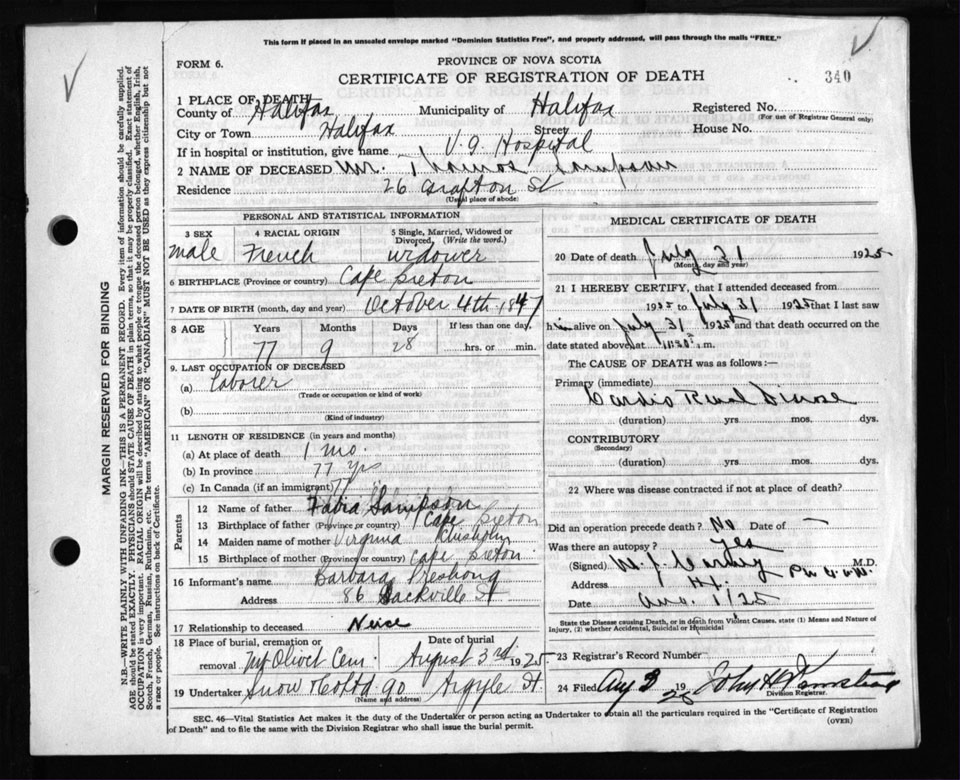 This form if placed in an unsealed envelope marked "Dominion Statistics Free", and properly addressed, will pass through the mails "FREE."
FORM 6.
PROVINCE OF NOVA SCOTIA
CERTIFICATE OF REGISTRATION OF DEATH
340
1 PLACE OF DEATH
County of Halifax Municipality of Halifax Registered No.
(For use of Registrar General only)
City or Town Halifax Street House No.
If in hospital or institution, give name V. G. Hospital
2 NAME OF DECEASED Mr. Sampson
Residence 26 Grafton St
(Usual place of abode)
PERSONAL AND STATISTICAL INFORMATION
3 SEX 4 RACIAL ORIGIN 5 Single, Married, Widowed or Divorced, (Write the word.)
male French widower
6 BIRTHPLACE (Province or country) Cape Breton
7 DATE OF BIRTH (month, day and year) October 4th 1847
8 AGE Years Months Days If less than one day,
77 9 28 hrs. or min.
9. LAST OCCUPATION OF DECEASED
(a) Laborer
(Trade or occupation or kind of work)
(b)
(Kind of industry)
11 LENGTH OF RESIDENCE (in years and months)
(a) At place of death 1 mo.
(b) In province 77 yrs
(c) In Canada (if an immigrant) 77 "
Parents
12 Name of father Fabia Sampson
13 Birthplace of father (Province or country) Cape Breton
14 Maiden name of mother Virginia Chisholm
15 Birthplace of mother (Province or country) Cape Breton
16 Informant's name Barbara
Address 86 Sackville St
17 Relationship to deceased Neice
18 Place of burial, cremation or removal Mt Olivet Cem. Date of burial August 3rd 1925
19 Undertaker Snow & Co Ltd 90 Argyle St.
(Name and address)
MEDICAL CERTIFICATE OF DEATH
20 Date of death July 31 1925
(Month, day and year)
21 I HEREBY CERTIFY, that I attended deceased from
1925 to July 31 1925 that I last saw
him alive on July 31 1925 and that death occurred on the
date stated above at m.
The CAUSE OF DEATH was as follows:—
Primary (immediate)
Cardio Renal Disease
(duration) yrs mos. dys.
CONTRIBUTORY
(Secondary)
(duration) yrs mos. dys.
22 Where was disease contracted if not at place of death?
Did an operation precede death? No Date of —
Was there an autopsy? Yes
(Signed) M.D.
Address Hx.
Date Aug. 1/25
State the Disease causing Death, or in death from Violent Causes, state (1) Means and Nature of Injury, (2) whether Accidental, Suicidal or Homicidal
23 Registrar's Record Number
24 Filed Aug 3 1925 John H.
Division Registrar.
SEC. 46—Vital Statistics Act makes it the duty of the Undertaker or person acting as Undertaker to obtain all the particulars required in the "Certificate of Registration of Death" and to file the same with the Division Registrar who shall issue the burial permit.
(OVER)
MARGIN RESERVED FOR BINDING
N.B.—WRITE PLAINLY WITH UNFADING INK—THIS IS A PERMANENT RECORD. Every item of information should be carefully supplied.
AGE should be stated EXACTLY. PHYSICIANS should STATE CAUSE OF DEATH in plain terms, so that it may be properly classified. Exact statement of
OCCUPATION is very important. RACIAL ORIGIN will be described by stating to what people or tongue the deceased person belonged, whether English, Irish,
Scotch, French, German, Russian, Ruthenian, etc. The terms "AMERICAN" OR "CANADIAN" MUST NOT BE USED as they express citizenship but not
a race or people. See instructions on back of Certificate.